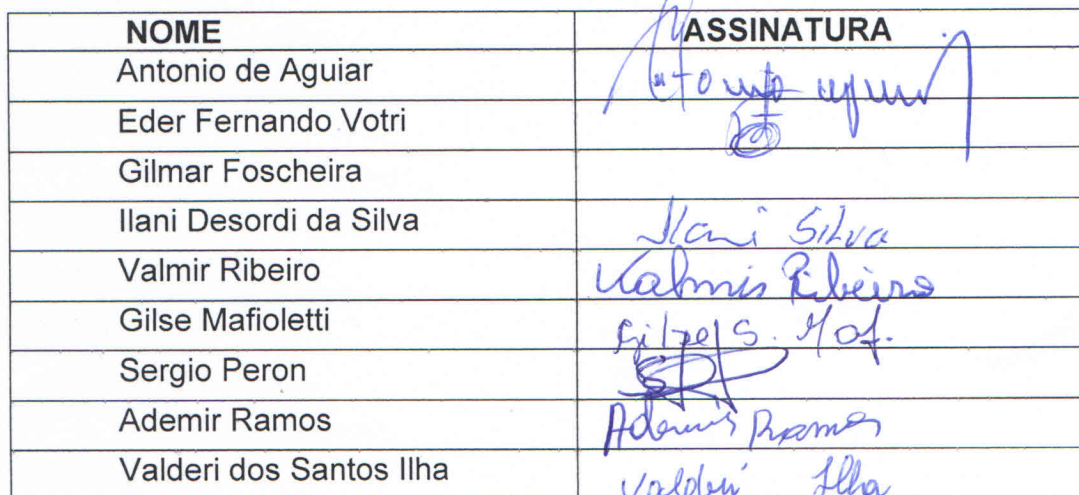 NOME ASSINATURA
Antonio de Aguiar
Eder Fernando Votri
Gilmar Foscheira
Ilani Desordi da Silva Ilani Silva
Valmir Ribeiro Valmir Ribeiro
Gilse Mafioletti Gilse S. Maf.
Sergio Peron
Ademir Ramos Ademir Ramos
Valderi dos Santos Ilha Valderi Ilha